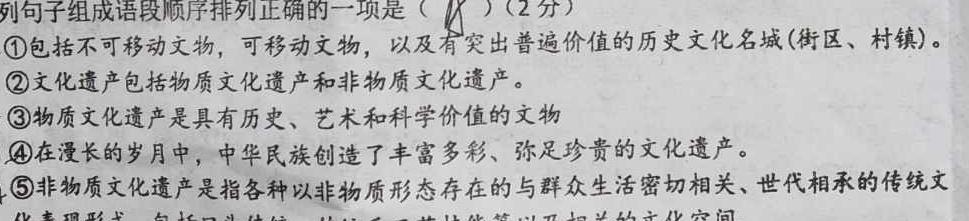 列句子组成语段顺序排列正确的一项是（ ）（2分）
①包括不可移动文物，可移动文物，以及有突出普遍价值的历史文化名城(街区、村镇)。
②文化遗产包括物质文化遗产和非物质文化遗产。
③物质文化遗产是具有历史、艺术和科学价值的文物
④在漫长的岁月中，中华民族创造了丰富多彩、弥足珍贵的文化遗产。
⑤非物质文化遗产是指各种以非物质形态存在的与群众生活密切相关、世代相承的传统文